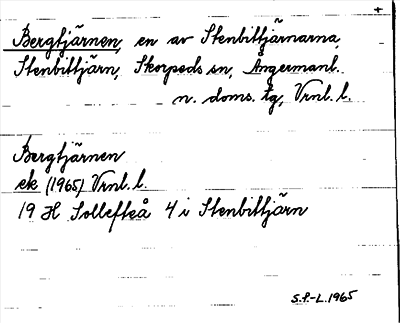 +
Bergtjärnen, en av Stenbittjärnarna,
Stenbittjärn, Skorpeds sn, Ångermanl.
n. doms. tg, Vrnl. l.
Bergtjärnen
ek (1965) Vrnl. l.
19 H Sollefteå 4 i Stenbittjärn
S.P.-L. 1965